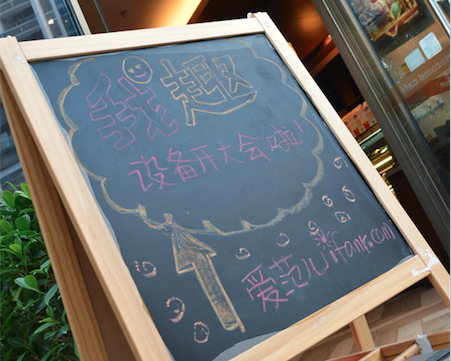 我趣
设备开大会啦!
爱范儿 ifanr.com